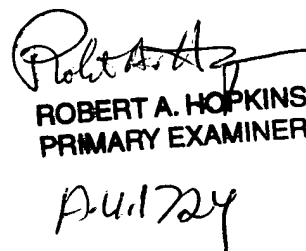 Robert A. H
ROBERT A. HOPKINS
PRIMARY EXAMINER
A.U. 1724